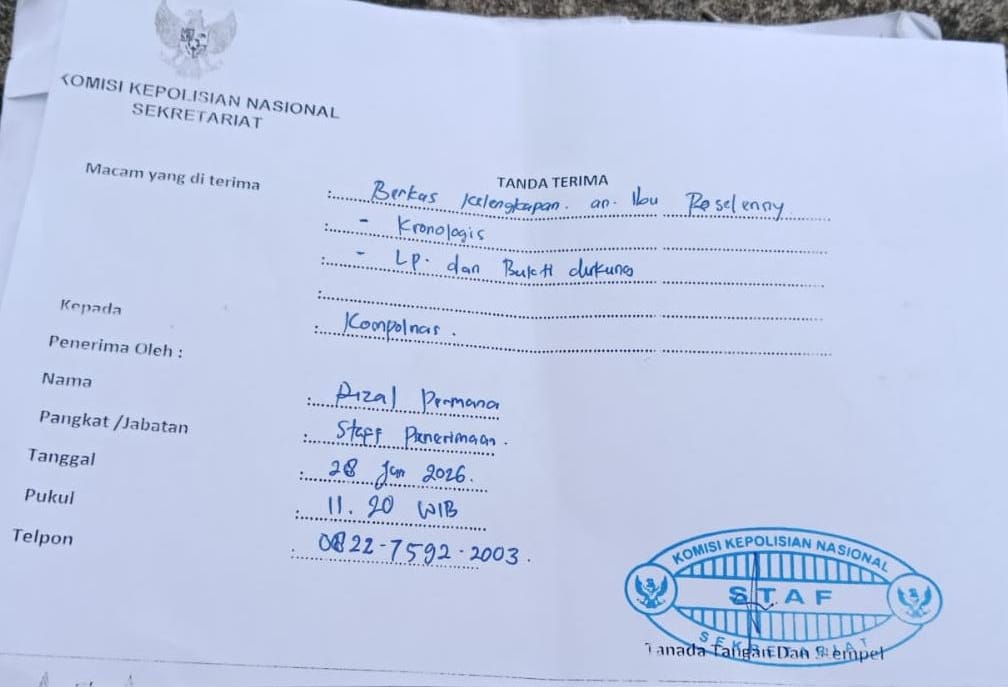 KOMISI KEPOLISIAN NASIONAL
SEKRETARIAT
TANDA TERIMA
Macam yang di terima : Berkas kelengkapan. an. Ibu Roselenny
: - Kronologis
: - LP. dan Bukti dukung
:
Kepada : Kompolnas.
Penerima Oleh :
Nama : Rizal Permana
Pangkat /Jabatan : Staff Penerimaan.
Tanggal : 28 Jan 2026.
Pukul : 11. 20 WIB
Telpon : 0822-7592-2003.
KOMISI KEPOLISIAN NASIONAL
STAF
SEKRETARIAT
Tanada Tangan Dan Stempel